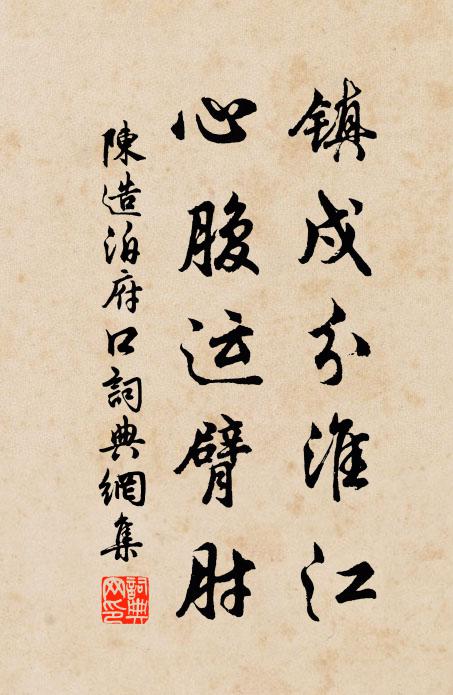 镇戍分淮江
心腹运臂肘
陳造泊府口詞典網集
詞典網印